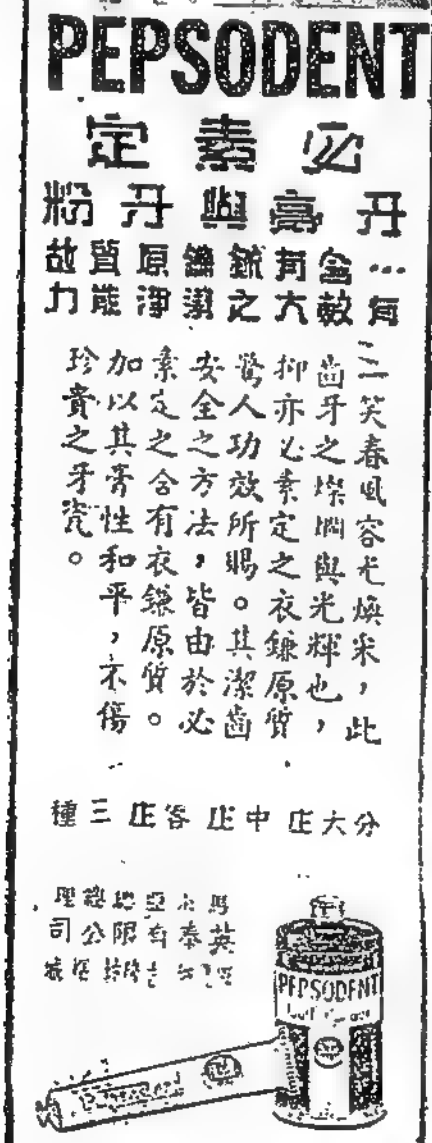 PEPSODENT
必素定
牙膏與牙粉
…含有銥鎌原質故
有大之潔淨能力
一笑春風容光煥采，此
齒牙之燦爛與光輝也，
抑亦必素定之衣鎌原質，
驚人功效所賜。其潔齒
安全之方法，皆由於必
素定之含有衣鎌原質。
加以其膏性和平，不傷
珍貴之牙瓷。
分大庄中庄客庄三種
馬來亞總理
英泰有限公司
PEPSODENT